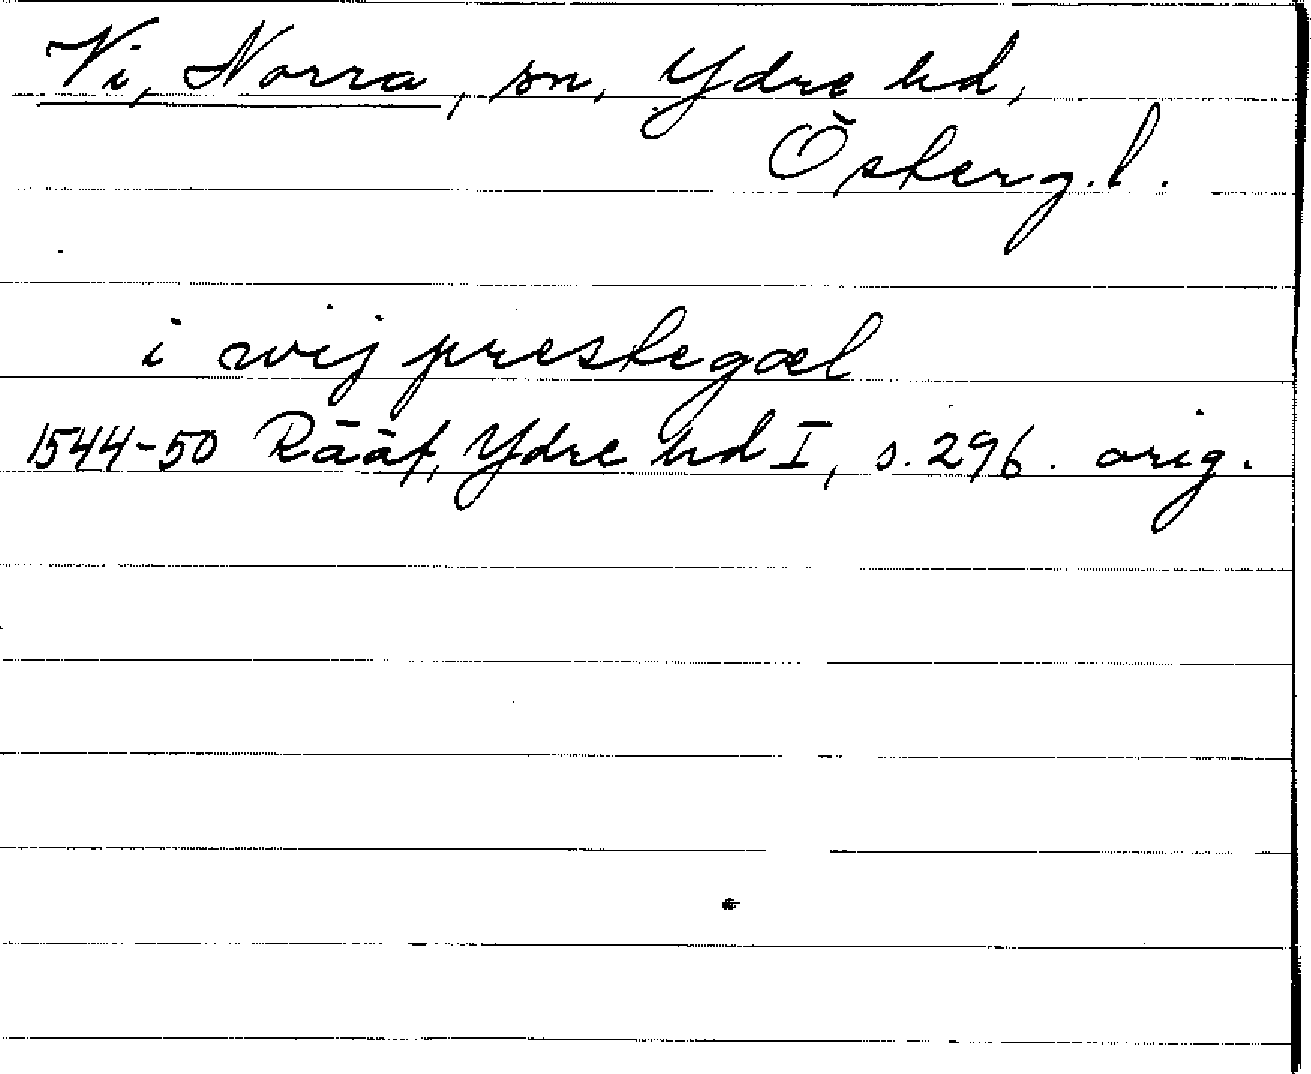 Vi, Norra, sn, Ydre hd,
Österg.l.
i wij prestegæl
1544-50 Rääf, Ydre hd I, s. 296. orig.